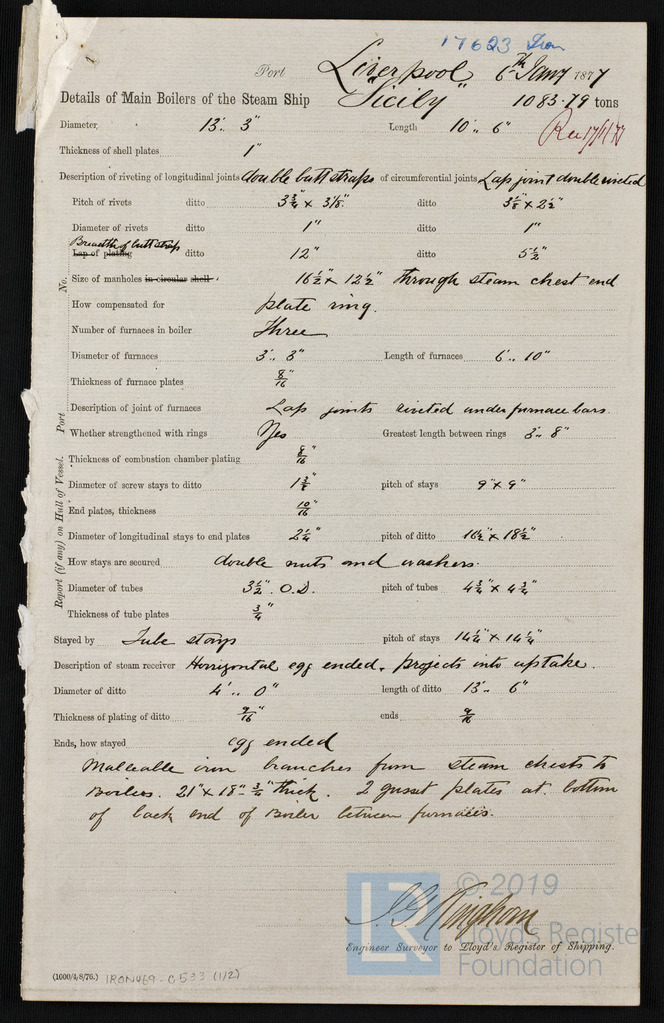 17623 Iron
Port Liverpool 6th Jany 1877
Details of Main Boilers of the Steam Ship "Sicily" 1083.79 tons
Diameter 13'.. 3" Length 10'.. 6" Rec 17/1/77
Thickness of shell plates 1"
Description of riveting of longitudinal joints double butt straps of circumferential joints Lap joint double riveted
Pitch of rivets ditto 3 3/4" x 3 1/8" ditto 3 1/8" x 2 1/2"
Diameter of rivets ditto 1" ditto 1"
Breadth of butt strap
Lap of plating ditto 12" ditto 5 1/2"
No.
Size of manholes in circular shell 16 1/2" x 12 1/2" through steam chest end
How compensated for plate ring.
Number of furnaces in boiler Three
Diameter of furnaces 3'.. 3" Length of furnaces 6'.. 10"
Thickness of furnace plates 8/16"
Description of joint of furnaces Lap joints riveted under furnace bars.
Port
Whether strengthened with rings Yes Greatest length between rings 3'.. 8"
Thickness of combustion chamber plating 8/16"
Diameter of screw stays to ditto 1 3/8" pitch of stays 9" x 9"
End plates, thickness 10/16"
Report (if any) on Hull of Vessel.
Diameter of longitudinal stays to end plates 2 1/4" pitch of ditto 16 1/2" x 18 1/2"
How stays are secured double nuts and washers.
Diameter of tubes 3 1/2" O.D. pitch of tubes 4 3/4" x 4 3/4"
Thickness of tube plates 3/4"
Stayed by Tube stays pitch of stays 14 1/4" x 14 1/4"
Description of steam receiver Horizontal egg ended. projects into uptake.
Diameter of ditto 4'.. 0" length of ditto 13'.. 6"
Thickness of plating of ditto 9/16" ends 9/16"
Ends, how stayed egg ended
Malleable iron branches from steam chests to
Boilers. 21" x 18" - 3/4" thick. 2 gusset plates at bottom
of back end of Boiler between furnaces.
© 2019
Lloyd's Register
Foundation
Engineer Surveyor to Lloyd's Register of Shipping.
(1000/4/8/76.) IRONV69-0533 (1/2)